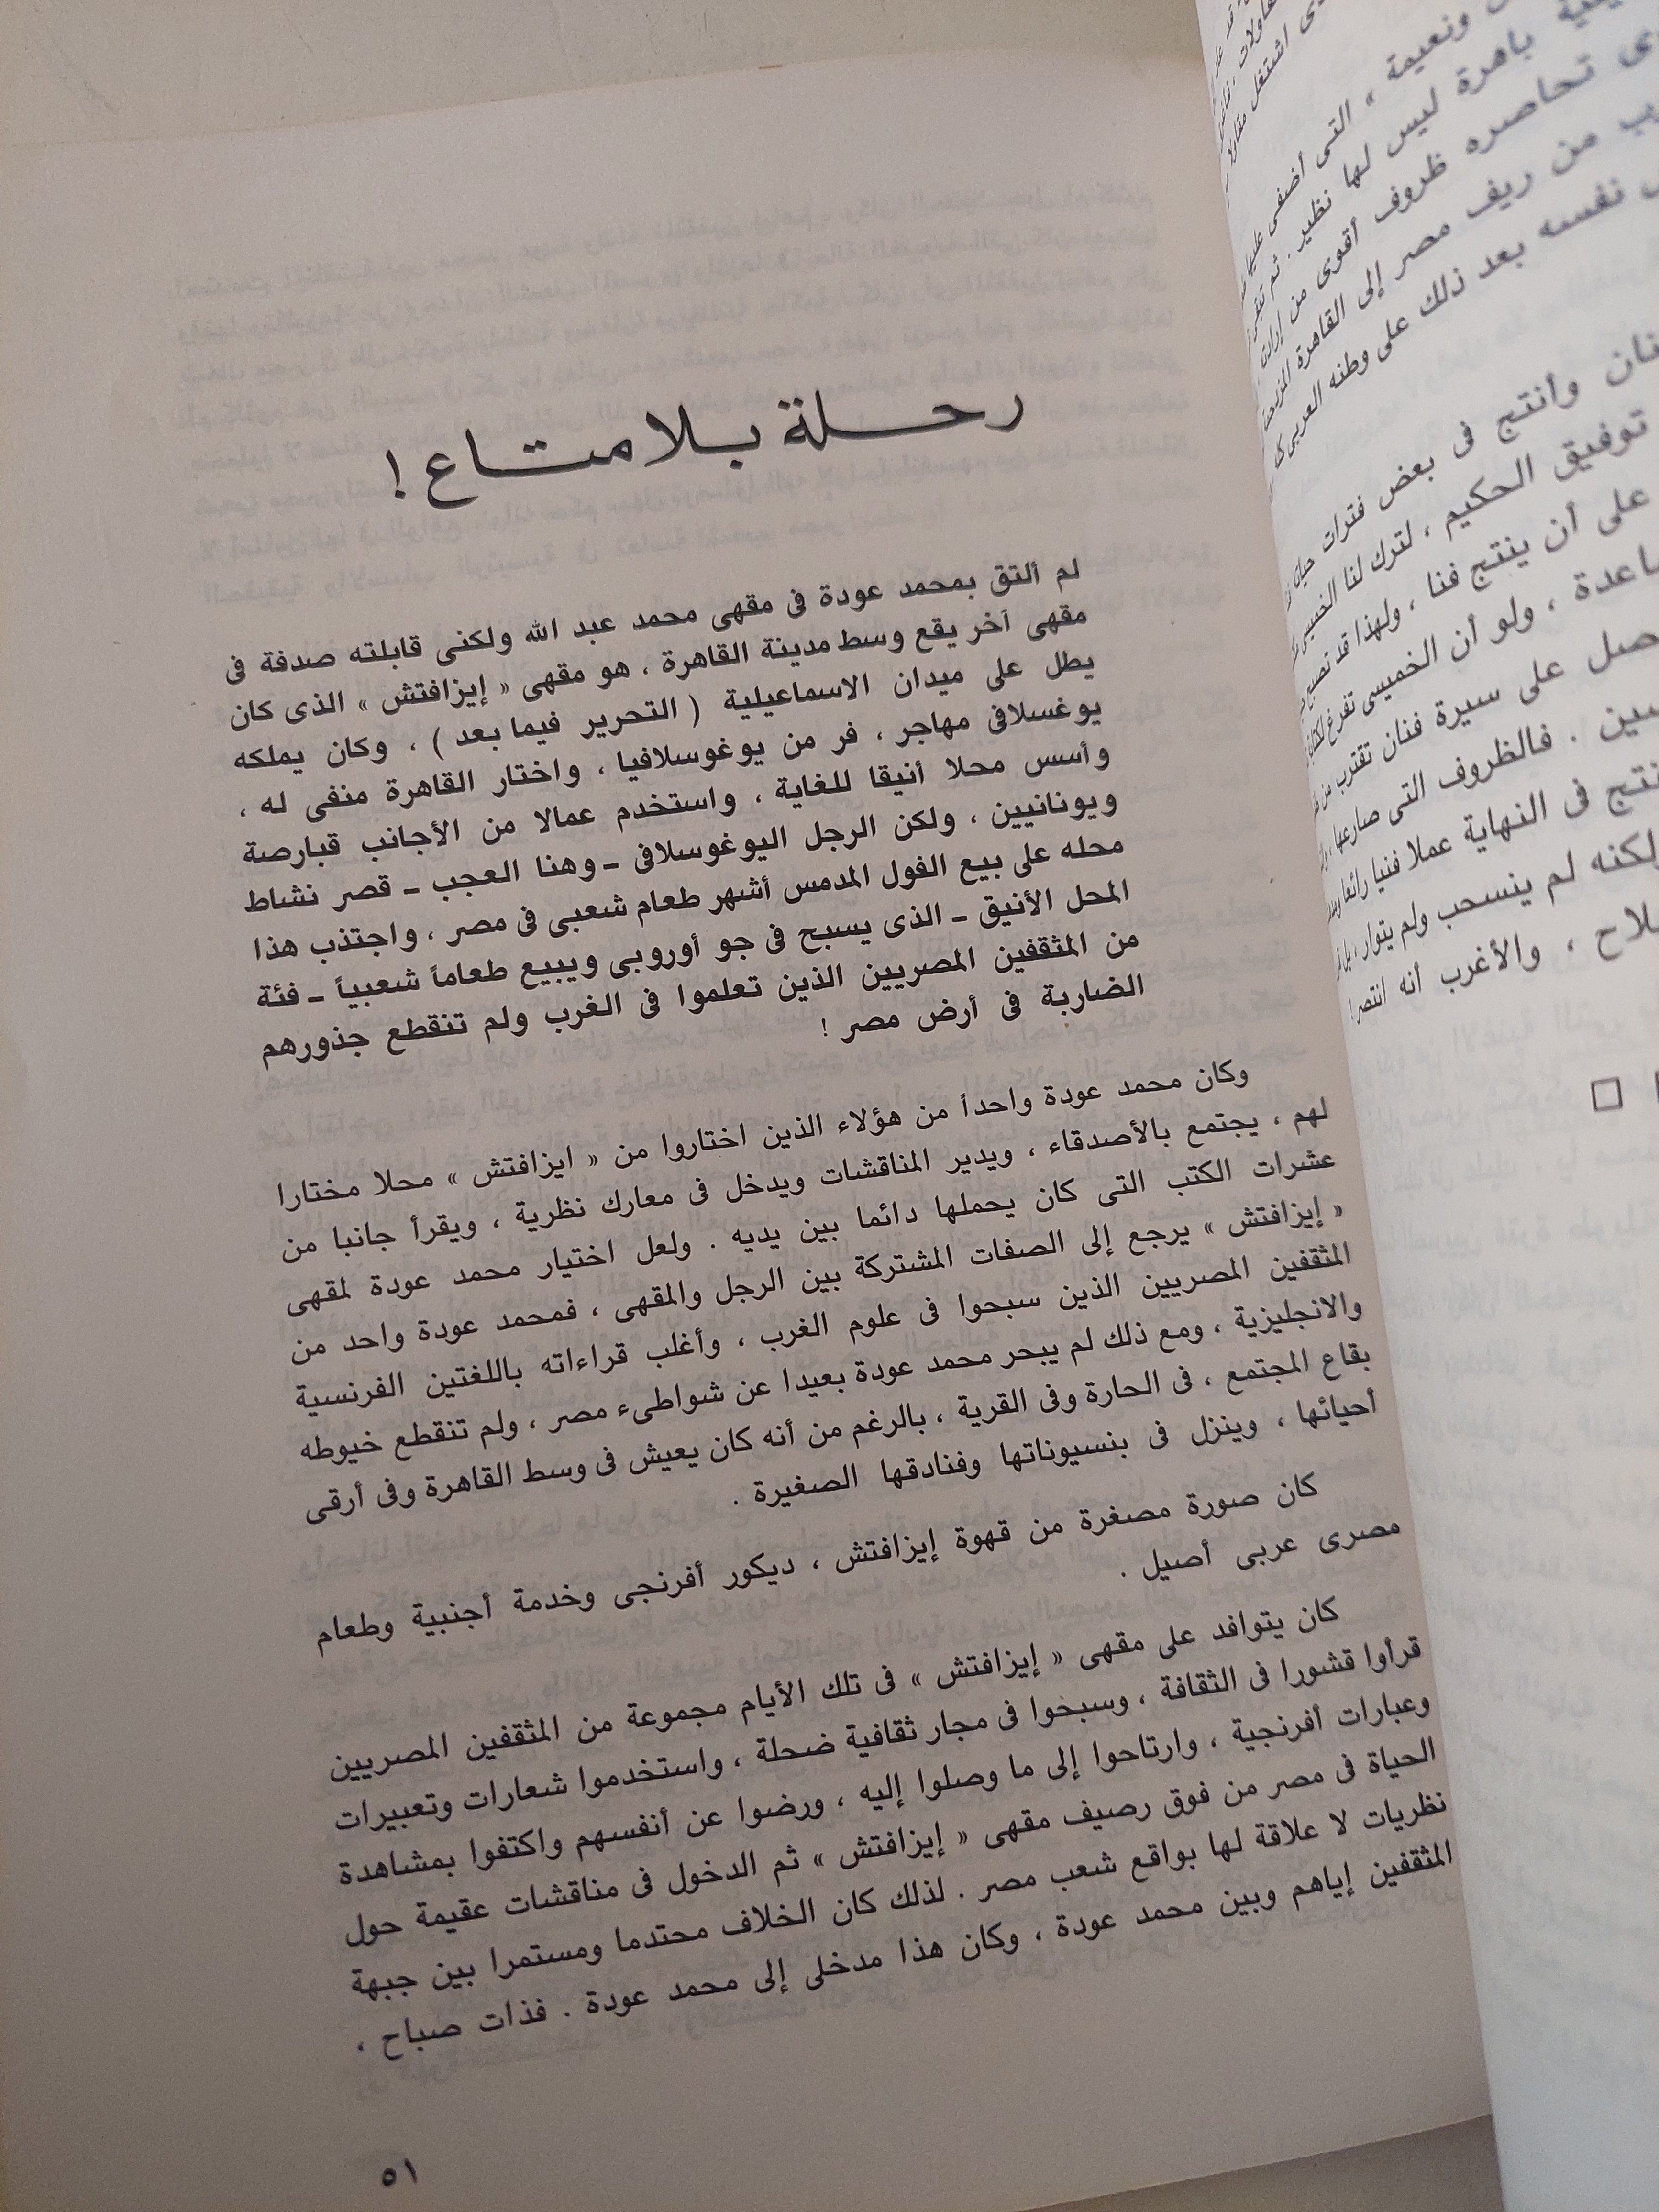 رحلة بلا متاع !
لم ألتق بمحمد عودة فى مقهى محمد عبد الله ولكنى قابلته صدفة فى
مقهى آخر يقع وسط مدينة القاهرة ، هو مقهى « إيزافتش » الذى كان
يطل على ميدان الاسماعيلية ( التحرير فيما بعد ) ، وكان يملكه
يوغسلافى مهاجر ، فر من يوغوسلافيا ، واختار القاهرة منفى له ،
وأسس محلا أنيقا للغاية ، واستخدم عمالا من الأجانب قبارصة
ويونانيين ، ولكن الرجل اليوغوسلافى ـ وهنا العجب ـ قصر نشاط
محله على بيع الفول المدمس أشهر طعام شعبى فى مصر ، واجتذب هذا
المحل الأنيق ـ الذى يسبح فى جو أوروبى ويبيع طعاماً شعبياً ـ فئة
من المثقفين المصريين الذين تعلموا فى الغرب ولم تنقطع جذورهم
الضاربة فى أرض مصر !
وكان محمد عودة واحداً من هؤلاء الذين اختاروا من « ايزافتش » محلا مختارا
لهم ، يجتمع بالأصدقاء ، ويدير المناقشات ويدخل فى معارك نظرية ، ويقرأ جانبا من
عشرات الكتب التى كان يحملها دائما بين يديه . ولعل اختيار محمد عودة لمقهى
« إيزافتش » يرجع إلى الصفات المشتركة بين الرجل والمقهى ، فمحمد عودة واحد من
المثقفين المصريين الذين سبحوا فى علوم الغرب ، وأغلب قراءاته باللغتين الفرنسية
والانجليزية ، ومع ذلك لم يبحر محمد عودة بعيدا عن شواطىء مصر ، ولم تنقطع خيوطه
بقاع المجتمع ، فى الحارة وفى القرية ، بالرغم من أنه كان يعيش فى وسط القاهرة وفى أرقى
أحيائها ، وينزل فى بنسيوناتها وفنادقها الصغيرة .
كان صورة مصغرة من قهوة إيزافتش ، ديكور أفرنجى وخدمة أجنبية وطعام
مصرى عربى أصيل .
كان يتوافد على مقهى « إيزافتش » فى تلك الأيام مجموعة من المثقفين المصريين
قرأوا قشورا فى الثقافة ، وسبحوا فى مجار ثقافية ضحلة ، واستخدموا شعارات وتعبيرات
وعبارات أفرنجية ، وارتاحوا إلى ما وصلوا إليه ، ورضوا عن أنفسهم واكتفوا بمشاهدة
الحياة فى مصر من فوق رصيف مقهى « إيزافتش » ثم الدخول فى مناقشات عقيمة حول
نظريات لا علاقة لها بواقع شعب مصر . لذلك كان الخلاف محتدما ومستمرا بين جبهة
المثقفين إياهم وبين محمد عودة ، وكان هذا مدخلى إلى محمد عودة . فذات صباح ،
٥١
ونعيمة » ، التى أضفى عليها
باهرة ليس لها نظير . ثم
تحاصره ظروف أقوى من
من ريف مصر إلى القاهرة
نفسه بعد ذلك على وطنه العربى
وأنتج فى بعض فترات
توفيق الحكيم ، لترك لنا الخميسى
على أن ينتج فنا ، ولهذا قد تصبح
ولو أن الخميسى تفرغ
على سيرة فنان تقترب من
فالظروف التى صارعها
فى النهاية عملا فنيا رائعا
لم ينسحب ولم يتوار ، بل
، والأغرب أنه انتصر !